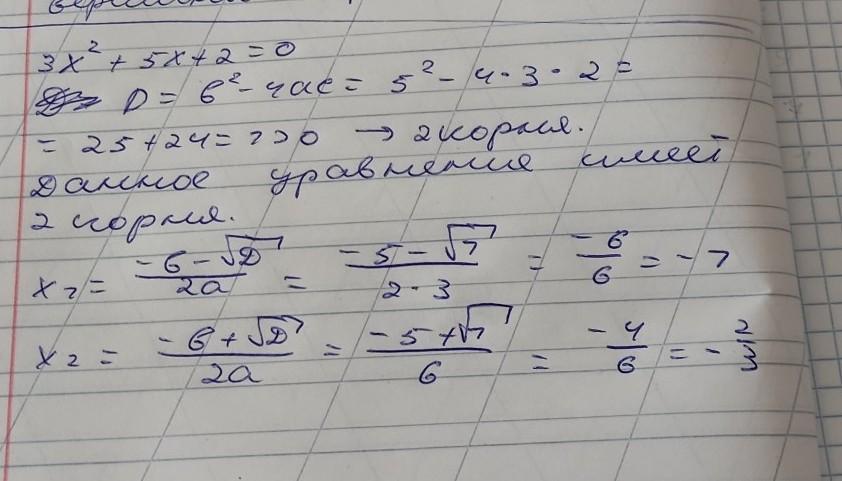 3x² + 5x + 2 = 0
D = b² - 4ac = 5² - 4 · 3 · 2 =
= 25 + 24 = 1 > 0 → 2 корня.
Данное уравнение имеет
2 корня.
x₁ = (-b - √D)/(2a) = (-5 - √1)/(2 · 3) = (-6)/6 = -1
x₂ = (-b + √D)/(2a) = (-5 + √1)/6 = (-4)/6 = -2/3